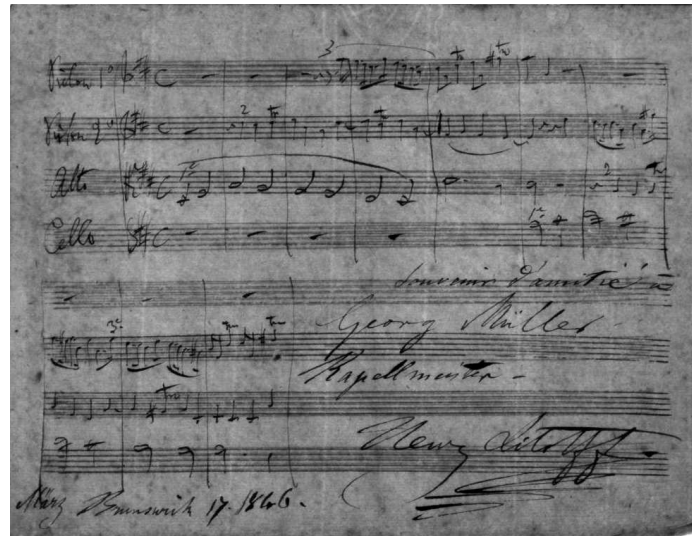 Violon 1º
Violon 2º
Alto
Cello
Souvenir d'amitié à
Georg Müller -
Kapellmeister -
Henry Litolff
März Brunswick 17. 1846.